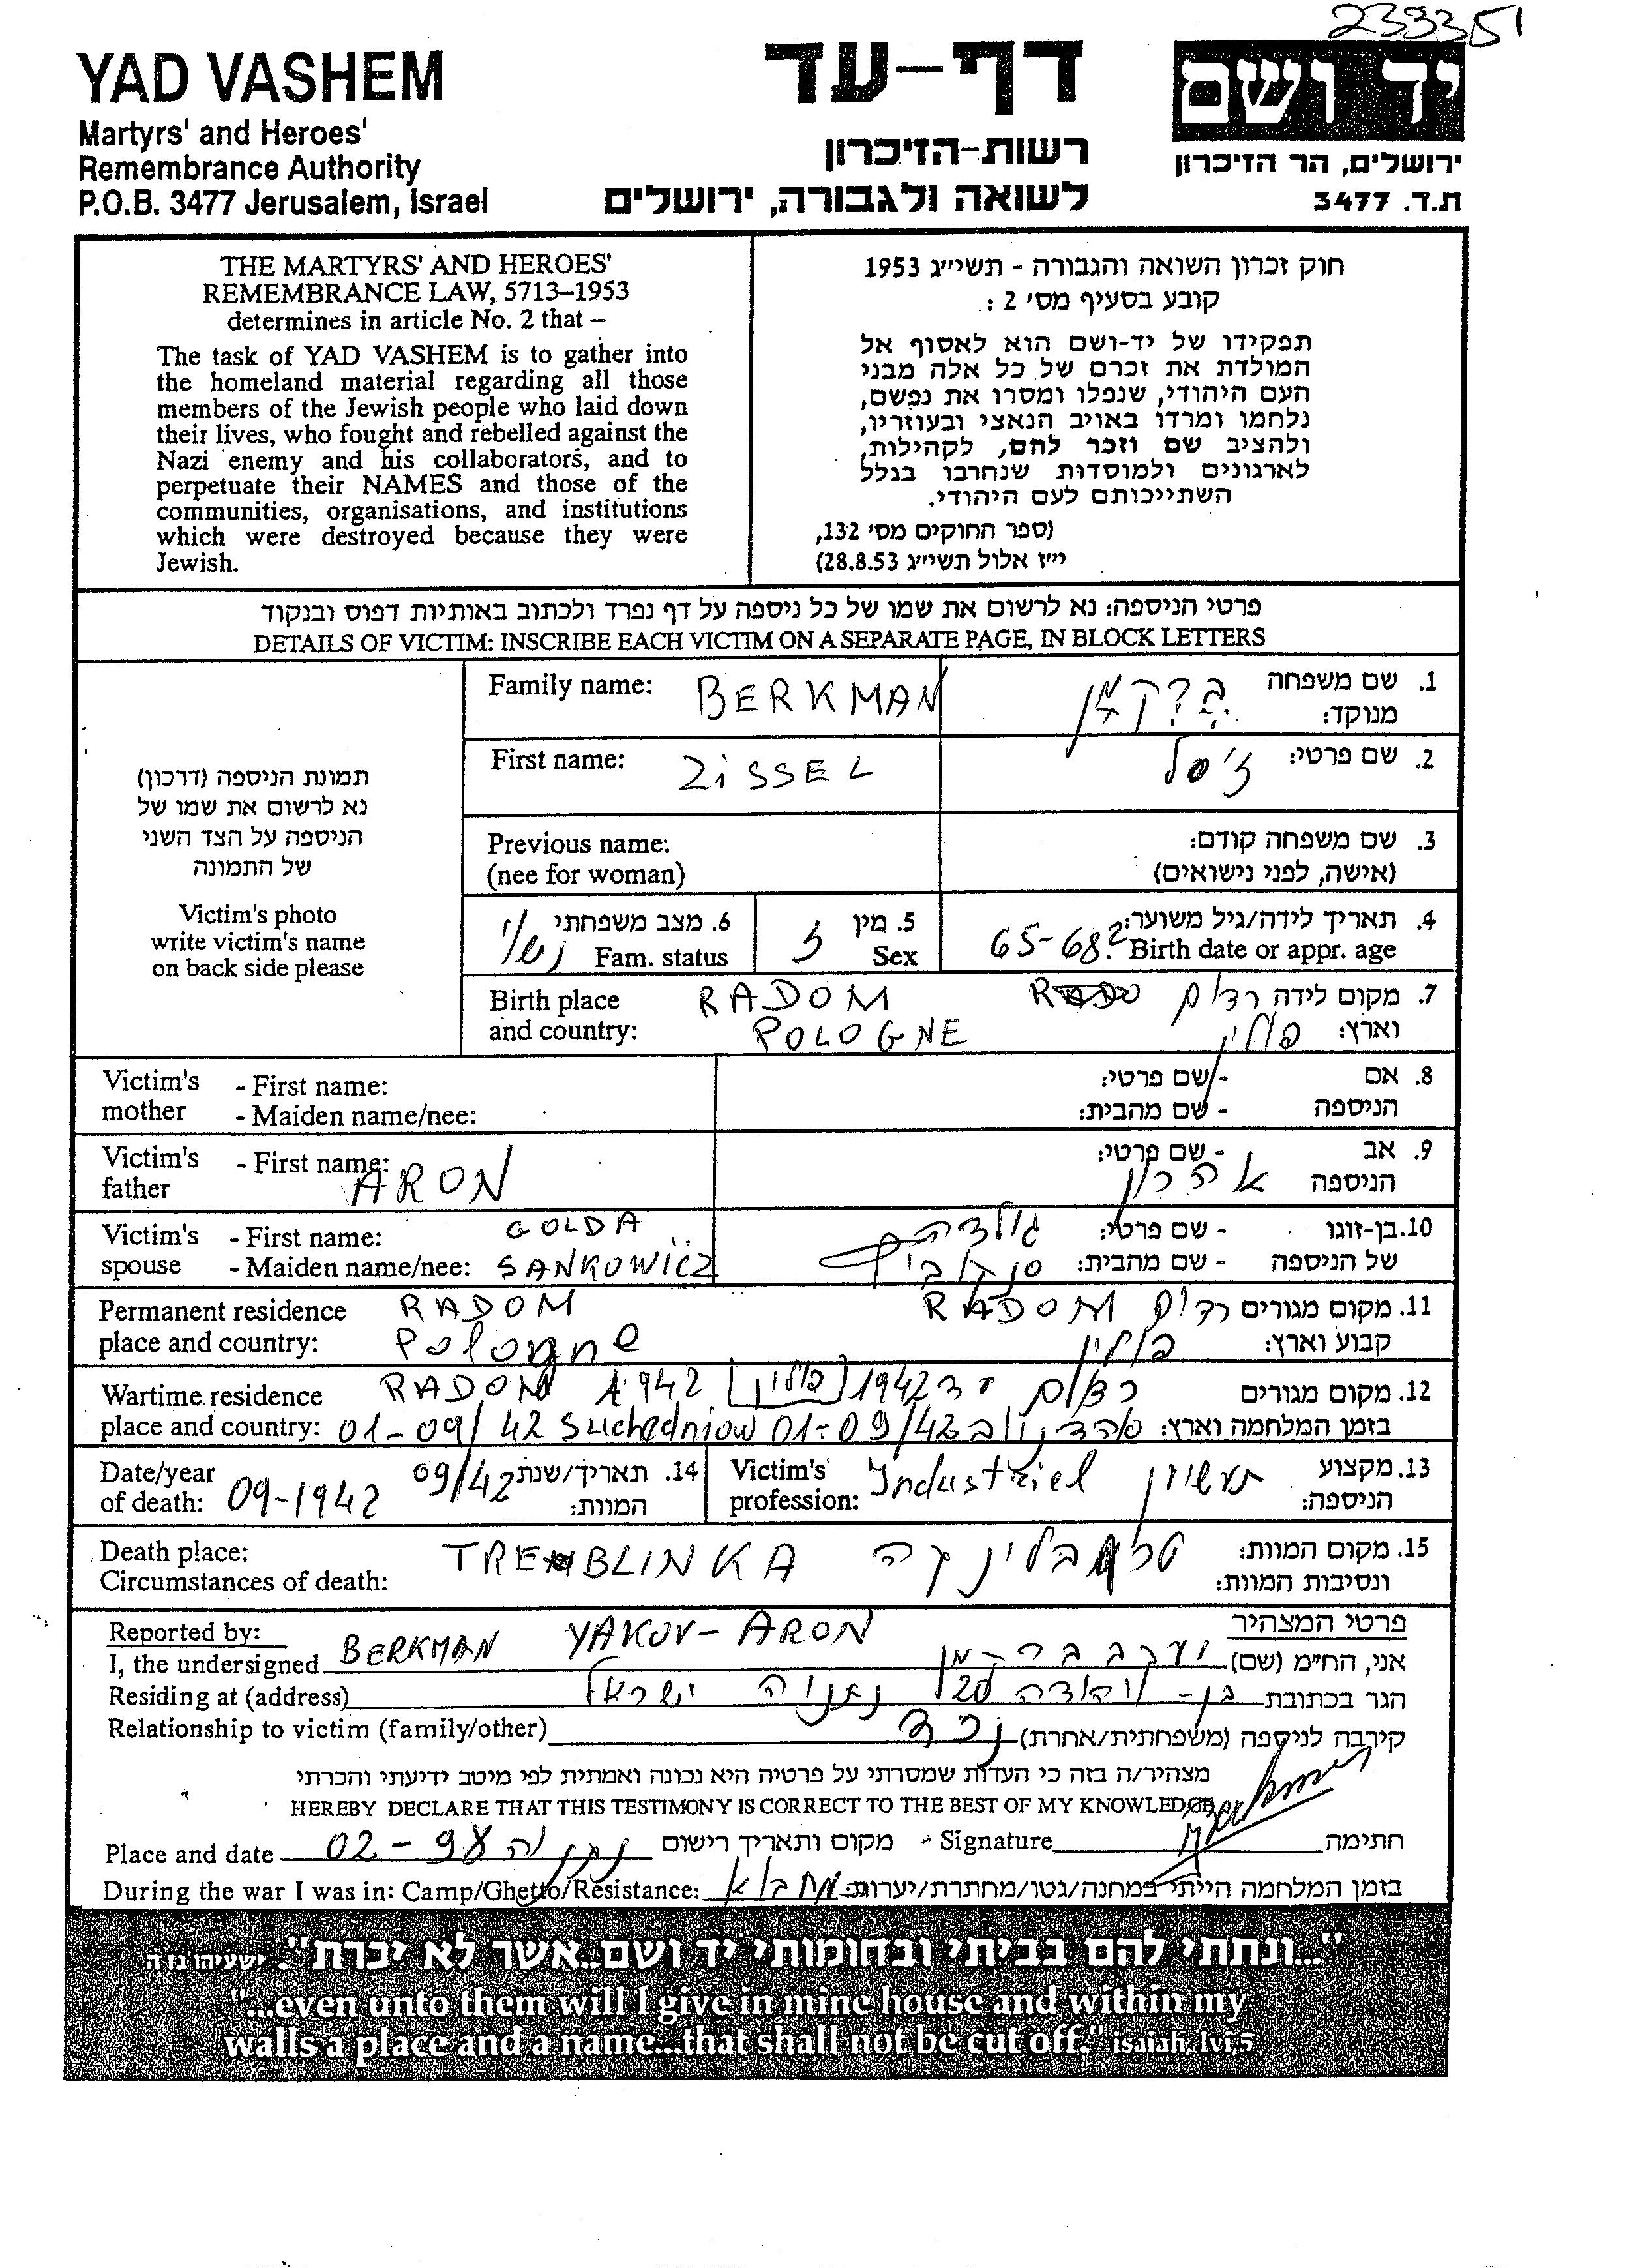 233351
YAD VASHEM
Martyrs' and Heroes'
Remembrance Authority
P.O.B. 3477 Jerusalem, Israel
דף-עד
רשות-הזיכרון
לשואה ולגבורה, ירושלים
יד ושם
ירושלים, הר הזיכרון
ת.ד. 3477
THE MARTYRS' AND HEROES'
REMEMBRANCE LAW, 5713–1953
determines in article No. 2 that –
The task of YAD VASHEM is to gather into
the homeland material regarding all those
members of the Jewish people who laid down
their lives, who fought and rebelled against the
Nazi enemy and his collaborators, and to
perpetuate their NAMES and those of the
communities, organisations, and institutions
which were destroyed because they were
Jewish.
חוק זכרון השואה והגבורה - תשי״ג 1953
קובע בסעיף מס׳ 2 :
תפקידו של יד-ושם הוא לאסוף אל
המולדת את זכרם של כל אלה מבני
העם היהודי, שנפלו ומסרו את נפשם,
נלחמו ומרדו באויב הנאצי ובעוזריו,
ולהציב שם וזכר להם, לקהילות,
לארגונים ולמוסדות שנחרבו בגלל
השתייכותם לעם היהודי.
(ספר החוקים מס׳ 132,
י״ז אלול תשי״ג 28.8.53)
פרטי הניספה: נא לרשום את שמו של כל ניספה על דף נפרד ולכתוב באותיות דפוס ובנקוד
DETAILS OF VICTIM: INSCRIBE EACH VICTIM ON A SEPARATE PAGE, IN BLOCK LETTERS
תמונת הניספה (דרכון)
נא לרשום את שמו של
הניספה על הצד השני
של התמונה
Victim's photo
write victim's name
on back side please
Family name: BERKMAN ברקמן 1. שם משפחה
מנוקד:
First name: ZiSSEL זיסל 2. שם פרטי:
Previous name: 3. שם משפחה קודם:
(nee for woman) (אישה, לפני נישואים)
6. מצב משפחתי נשוי 5. מין ז 4. תאריך לידה/גיל משוער:
Fam. status Sex 65-68? Birth date or appr. age
Birth place RADOM רדום 7. מקום לידה
and country: POLOGNE פולין וארץ:
Victim's - First name: - שם פרטי: 8. אם
mother - Maiden name/nee: - שם מהבית: הניספה
Victim's - First name: ARON אהרון - שם פרטי: 9. אב
father הניספה
Victim's - First name: GOLDA גולדה - שם פרטי: 10. בן-זוגו
spouse - Maiden name/nee: SANKOWICZ - שם מהבית: של הניספה
Permanent residence RADOM RADOM רדום 11. מקום מגורים
place and country: Pologne פולין קבוע וארץ:
Wartime residence RADOM 1942 פולין 1942 עד רדום 12. מקום מגורים
place and country: 01-09/42 Suchedniow 01-09/42 בזמן המלחמה וארץ:
Date/year 09/42 14. תאריך/שנת Victim's Industriel תעשיין 13. מקצוע
of death: 09-1942 המוות: profession: הניספה:
Death place: TREBLINKA טרבלינקה 15. מקום המוות:
Circumstances of death: ונסיבות המוות:
Reported by: פרטי המצהיר
I, the undersigned BERKMAN YAKOV-ARON יעקב ברקמן אני, הח״מ (שם)
Residing at (address) בן-יהודה נתניה ישראל הגר בכתובת
Relationship to victim (family/other) נכד קירבה לניספה (משפחתית/אחרת)
מצהיר/ה בזה כי העדות שמסרתי על פרטיה היא נכונה ואמתית לפי מיטב ידיעתי והכרתי
HEREBY DECLARE THAT THIS TESTIMONY IS CORRECT TO THE BEST OF MY KNOWLEDGE
Place and date 02-98 נתניה מקום ותאריך רישום - Signature Berkman חתימה
During the war I was in: Camp/Ghetto/Resistance: מחבוא בזמן המלחמה הייתי במחנה/גטו/מחתרת/יערות:
"...ונתתי להם בביתי ובחומותי יד ושם...אשר לא יכרת". ישעיהו נו ה
"...even unto them will I give in mine house and within my
walls a place and a name...that shall not be cut off." isaiah lvi,5